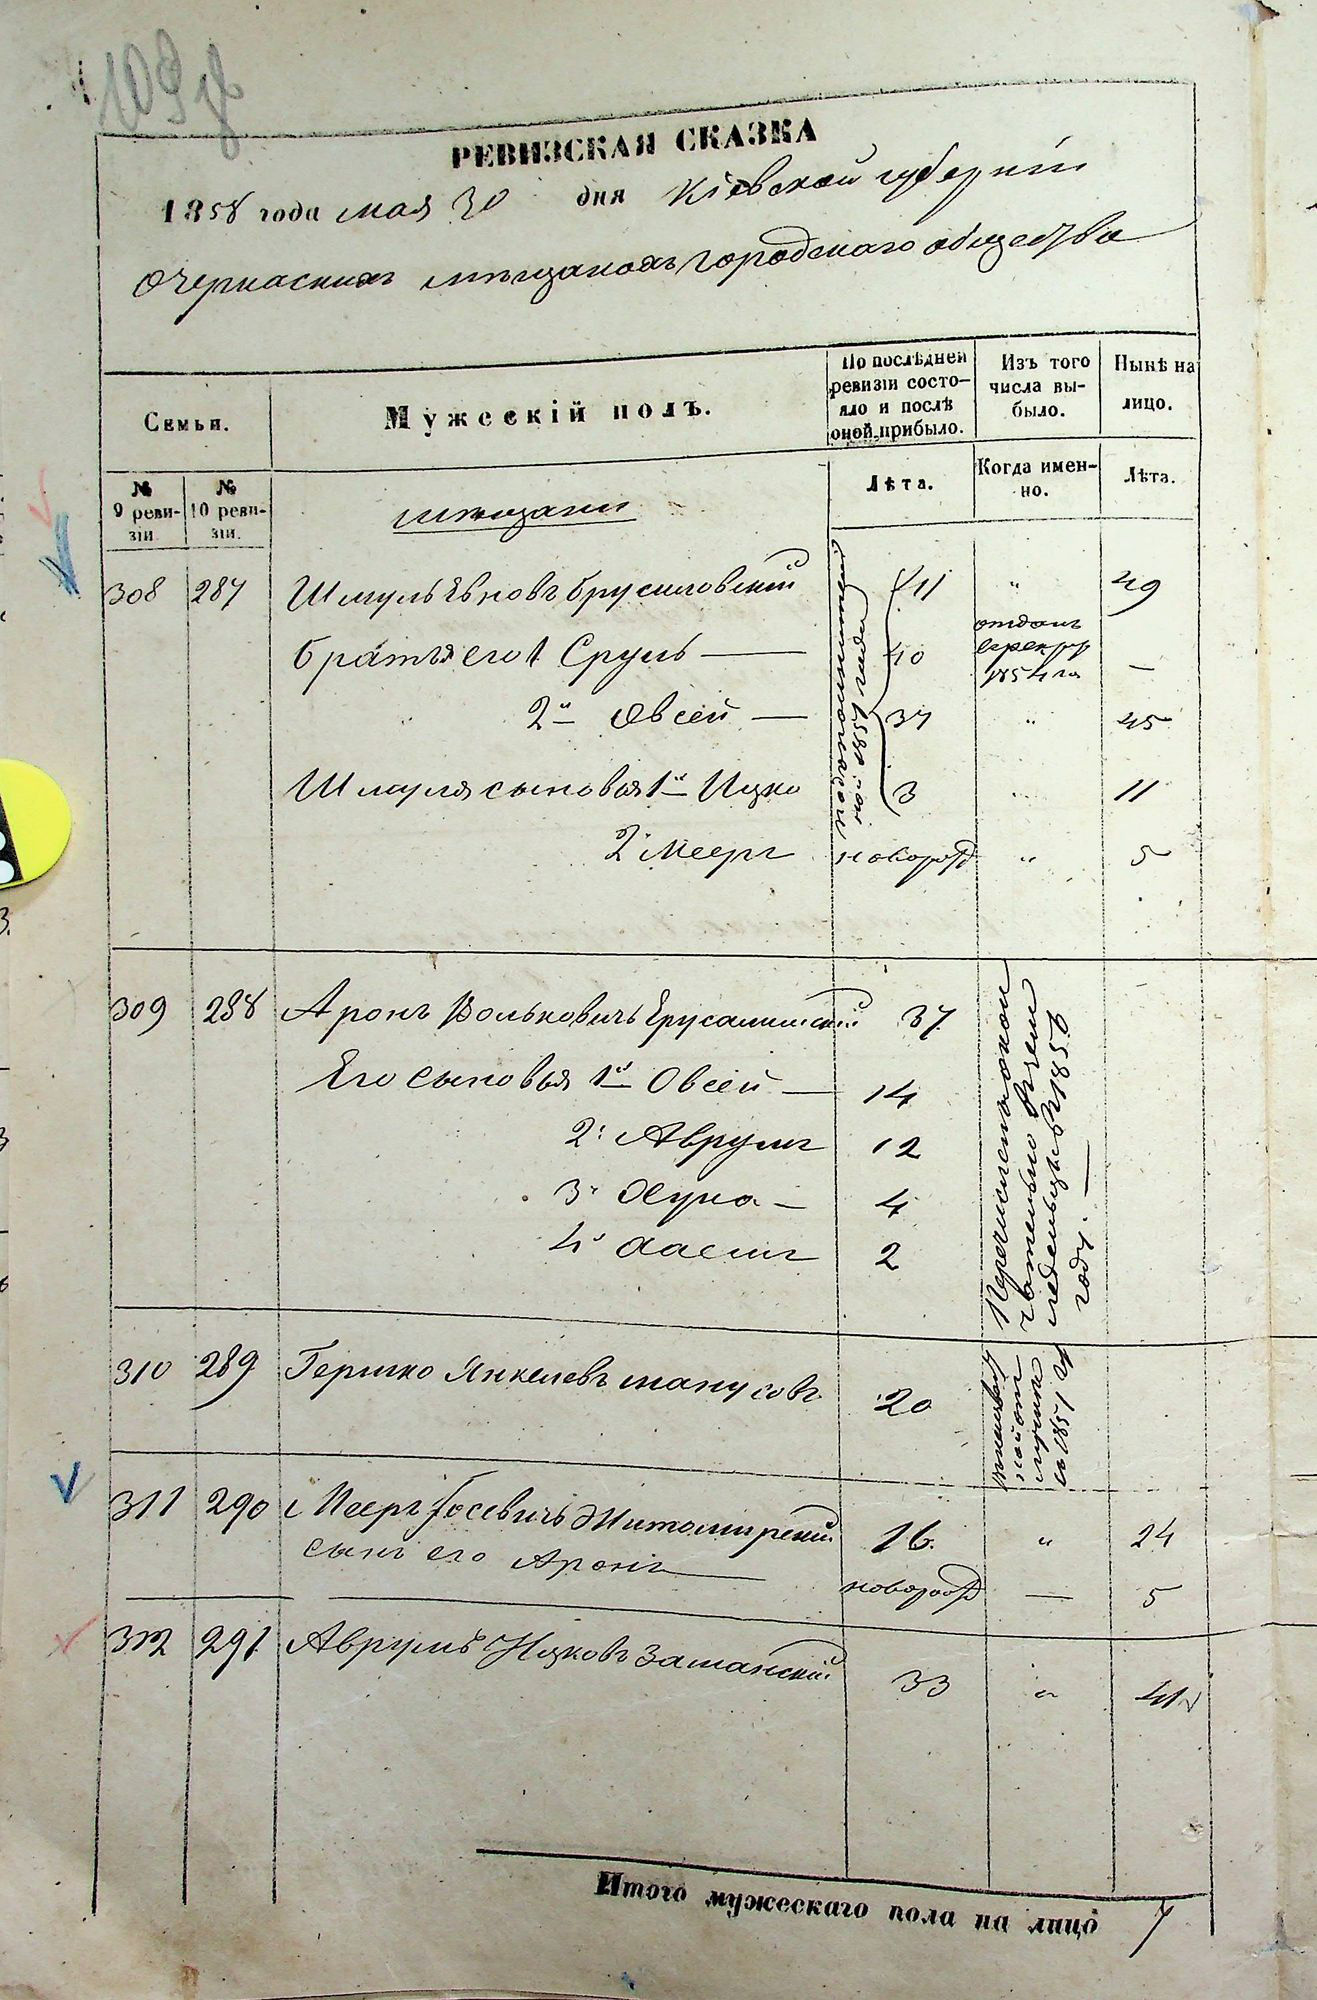 109
РЕВИЗСКАЯ СКАЗКА
1858 года мая 30 дня Кіевской губерніи
О черкаскихъ мѣщанахъ городскаго общества
Семьи.
Мужескій полъ.
По послѣдней ревизіи состояло и послѣ оной прибыло.
Изъ того числа выбыло.
Нынѣ на лицо.
№ 9 ревизіи
№ 10 ревизіи.
мѣщане
Лѣта.
Когда именно.
Лѣта.
308 287 Шмуль Евновъ Брусиловскій 41 " 49
братья его 1 Сруль — 40 отданъ в рекру 1854 го —
2й Овсей — 37 " 45
Шмуля сыновья 1й Ицко 3 " 11
2 Мееръ новорожд " 5
309 288 Аронъ Вольковичъ Ерусалимскій 37
Его сыновья 1й Овсей — 14
2. Аврумъ 12
3. Хуна — 4
4. 2
Перечисленъ
1850
году. —
310 289 Гершко Янкелевъ манусовъ 20
1851
311 290 Мееръ Іосевичъ Житомирскій 16. " 24
сынъ его Аронъ — новорожд — 5
312 291 Аврумъ Ицковъ 33 " 41
Итого мужескаго пола на лицо 7